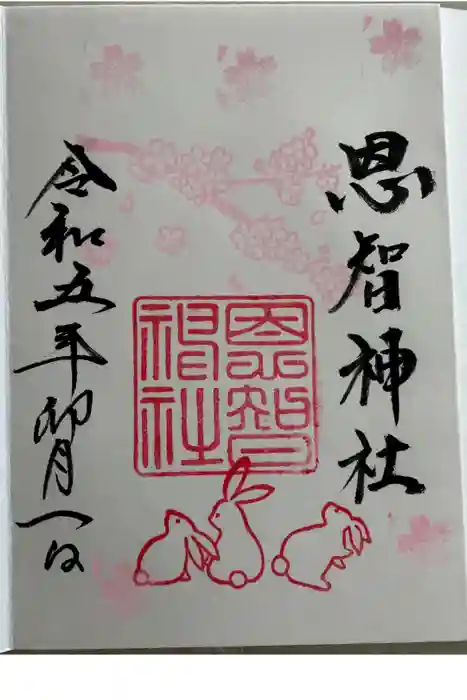 恩智神社
恩智神社
令和五年卯月一日